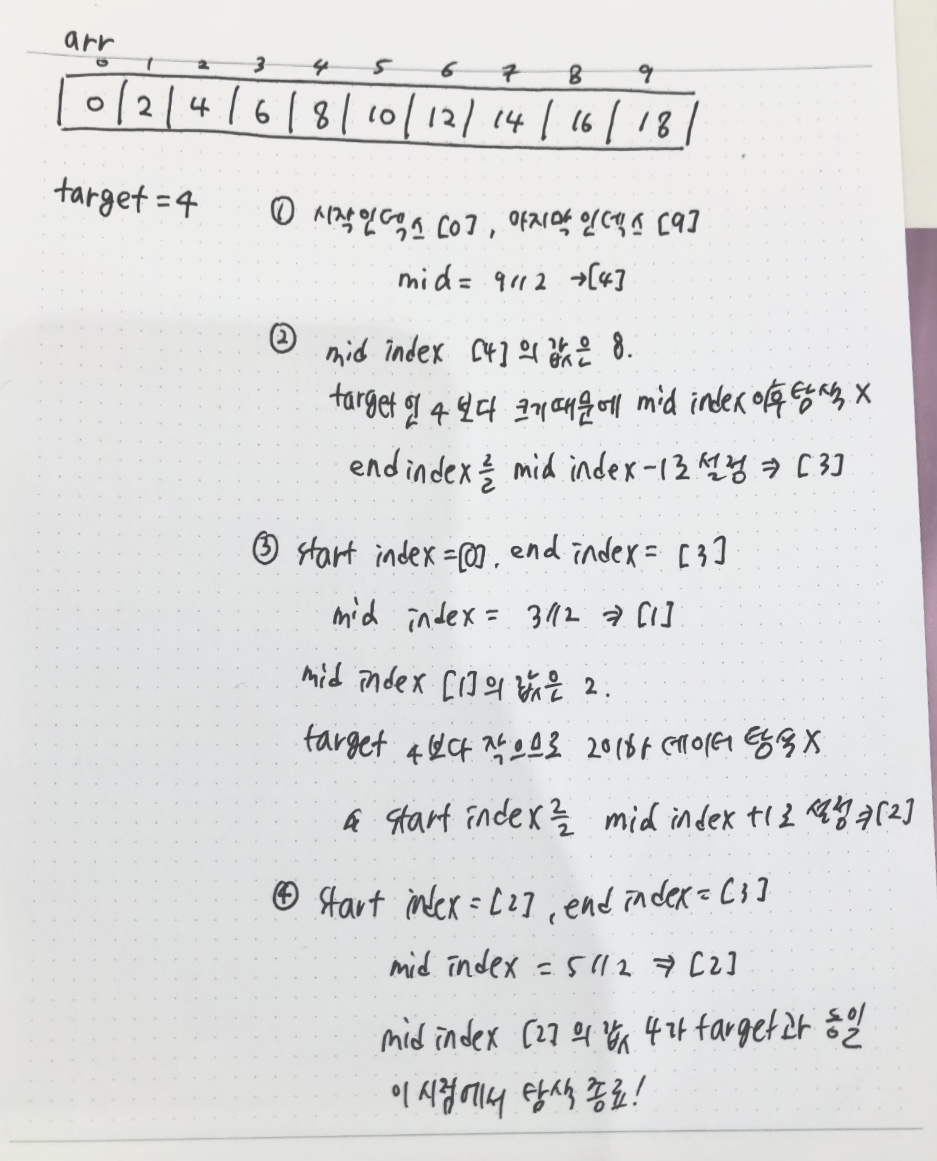 arr
0 1 2 3 4 5 6 7 8 9
0 2 4 6 8 10 12 14 16 18
target = 4
① 시작인덱스 [0], 마지막 인덱스 [9]
mid = 9//2 → [4]
② mid index [4]의 값은 8.
target인 4보다 크기때문에 mid index 이후 탐색 X
end index를 mid index -1로 설정 ⇒ [3]
③ start index = [0], end index = [3]
mid index = 3//2 ⇒ [1]
mid index [1]의 값은 2.
target 4보다 작으므로 2이하 데이터 탐색 X
start index를 mid index +1로 설정 ⇒ [2]
④ start index = [2], end index = [3]
mid index = 5//2 ⇒ [2]
mid index [2]의 값 4가 target과 동일
이 시점에서 탐색 종료!